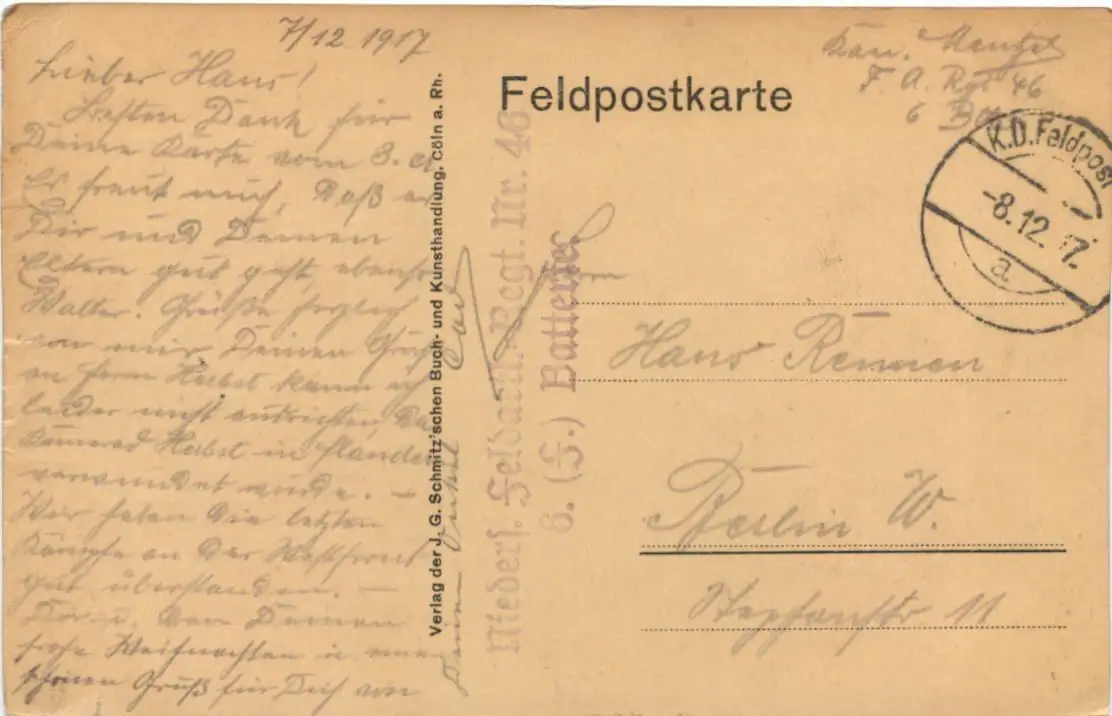 7/12 1917
Lieber Hans!
Besten Dank für
Deine Karte vom 3. cr.
Es freut mich, daß es
Dir und Deinen
Eltern gut geht, ebenso
Walter. Grüße herzlich
von mir. Deinen Gruß
an Herrn Herbst kann ich
leider nicht ausrichten, da
Kamerad Herbst in Flandern
verwundet wurde. —
Wir haben die letzten
Kämpfe an der Westfront
gut überstanden. —
Dir u. den Deinen
frohe Weihnachten u. einen
schönen Gruß für Dich von
Deinem Onkel
Verlag der J. G. Schmitz'schen Buch- und Kunsthandlung, Cöln a. Rh.
Feldpostkarte
Kan. Menzel
F. A. Rgt 46
6 Batt
K.D. Feldpost
-8.12.17.
a
Niedersf. Feldartl.-Regt. Nr. 46
6. (F.) Batterie
Herrn
Hans Rennen
Berlin W.
Stephanstr 11